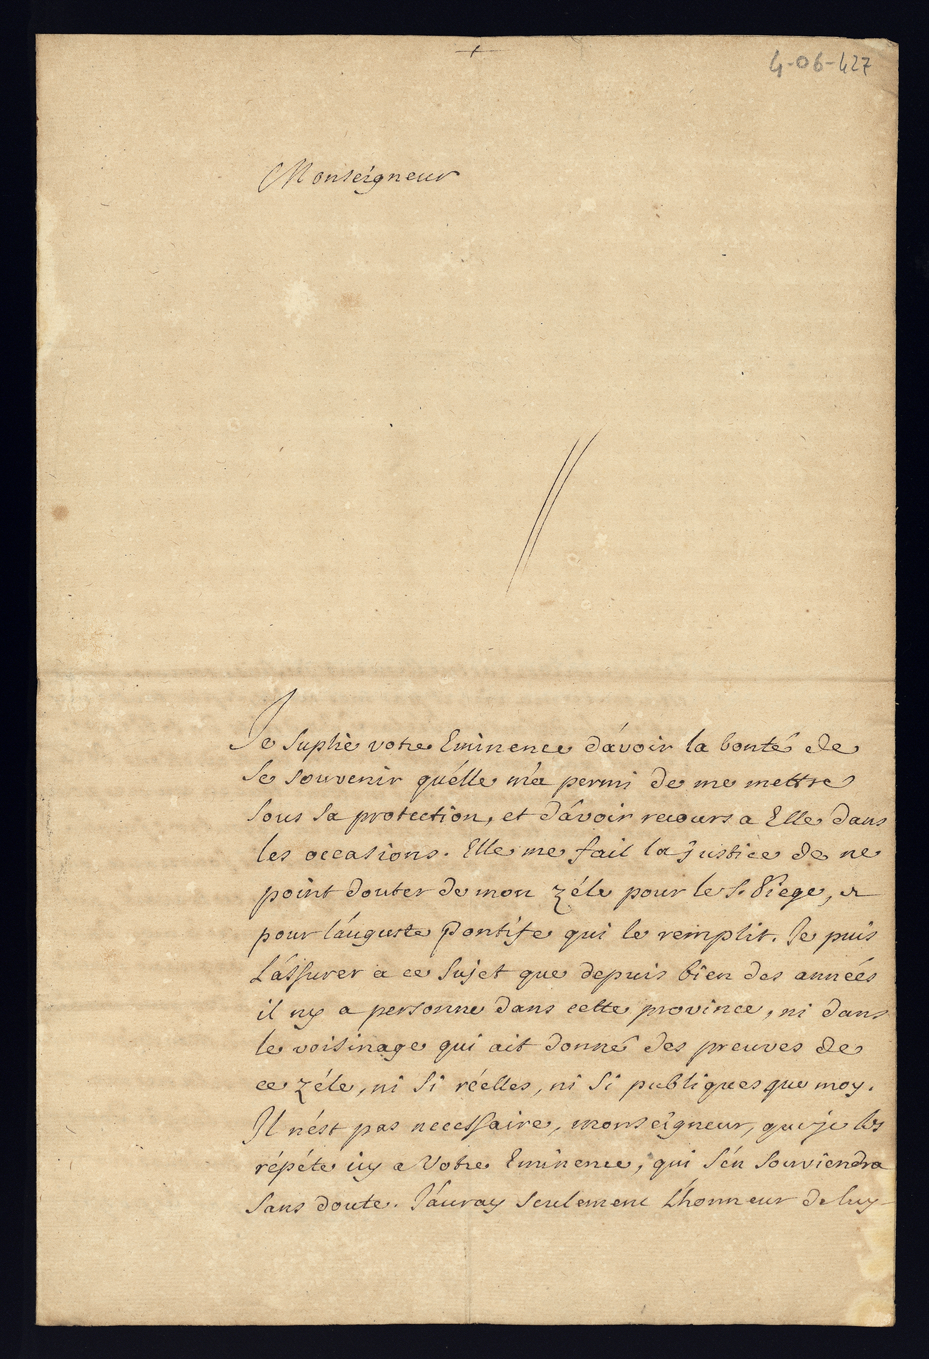 4-06-427
Monseigneur
Je suplie votre Eminence d'avoir la bonté de
se souvenir qu'elle m'a permi de me mettre
sous sa protection, et d'avoir recours a Elle dans
les occasions. Elle me fait la justice de ne
point douter de mon zéle pour le S. Siege, et
pour l'auguste Pontife qui le remplit. Je puis
L'assurer a ce sujet que depuis bien des années
il ny a personne dans cette province, ni dans
le voisinage qui ait donné des preuves de
ce zéle, ni si réelles, ni si publiques que moy.
Il n'ést pas necessaire, monseigneur, que je les
répéte icy a Votre Eminence, qui s'en souviendra
sans doute. J'auray seulement L'honneur de luy